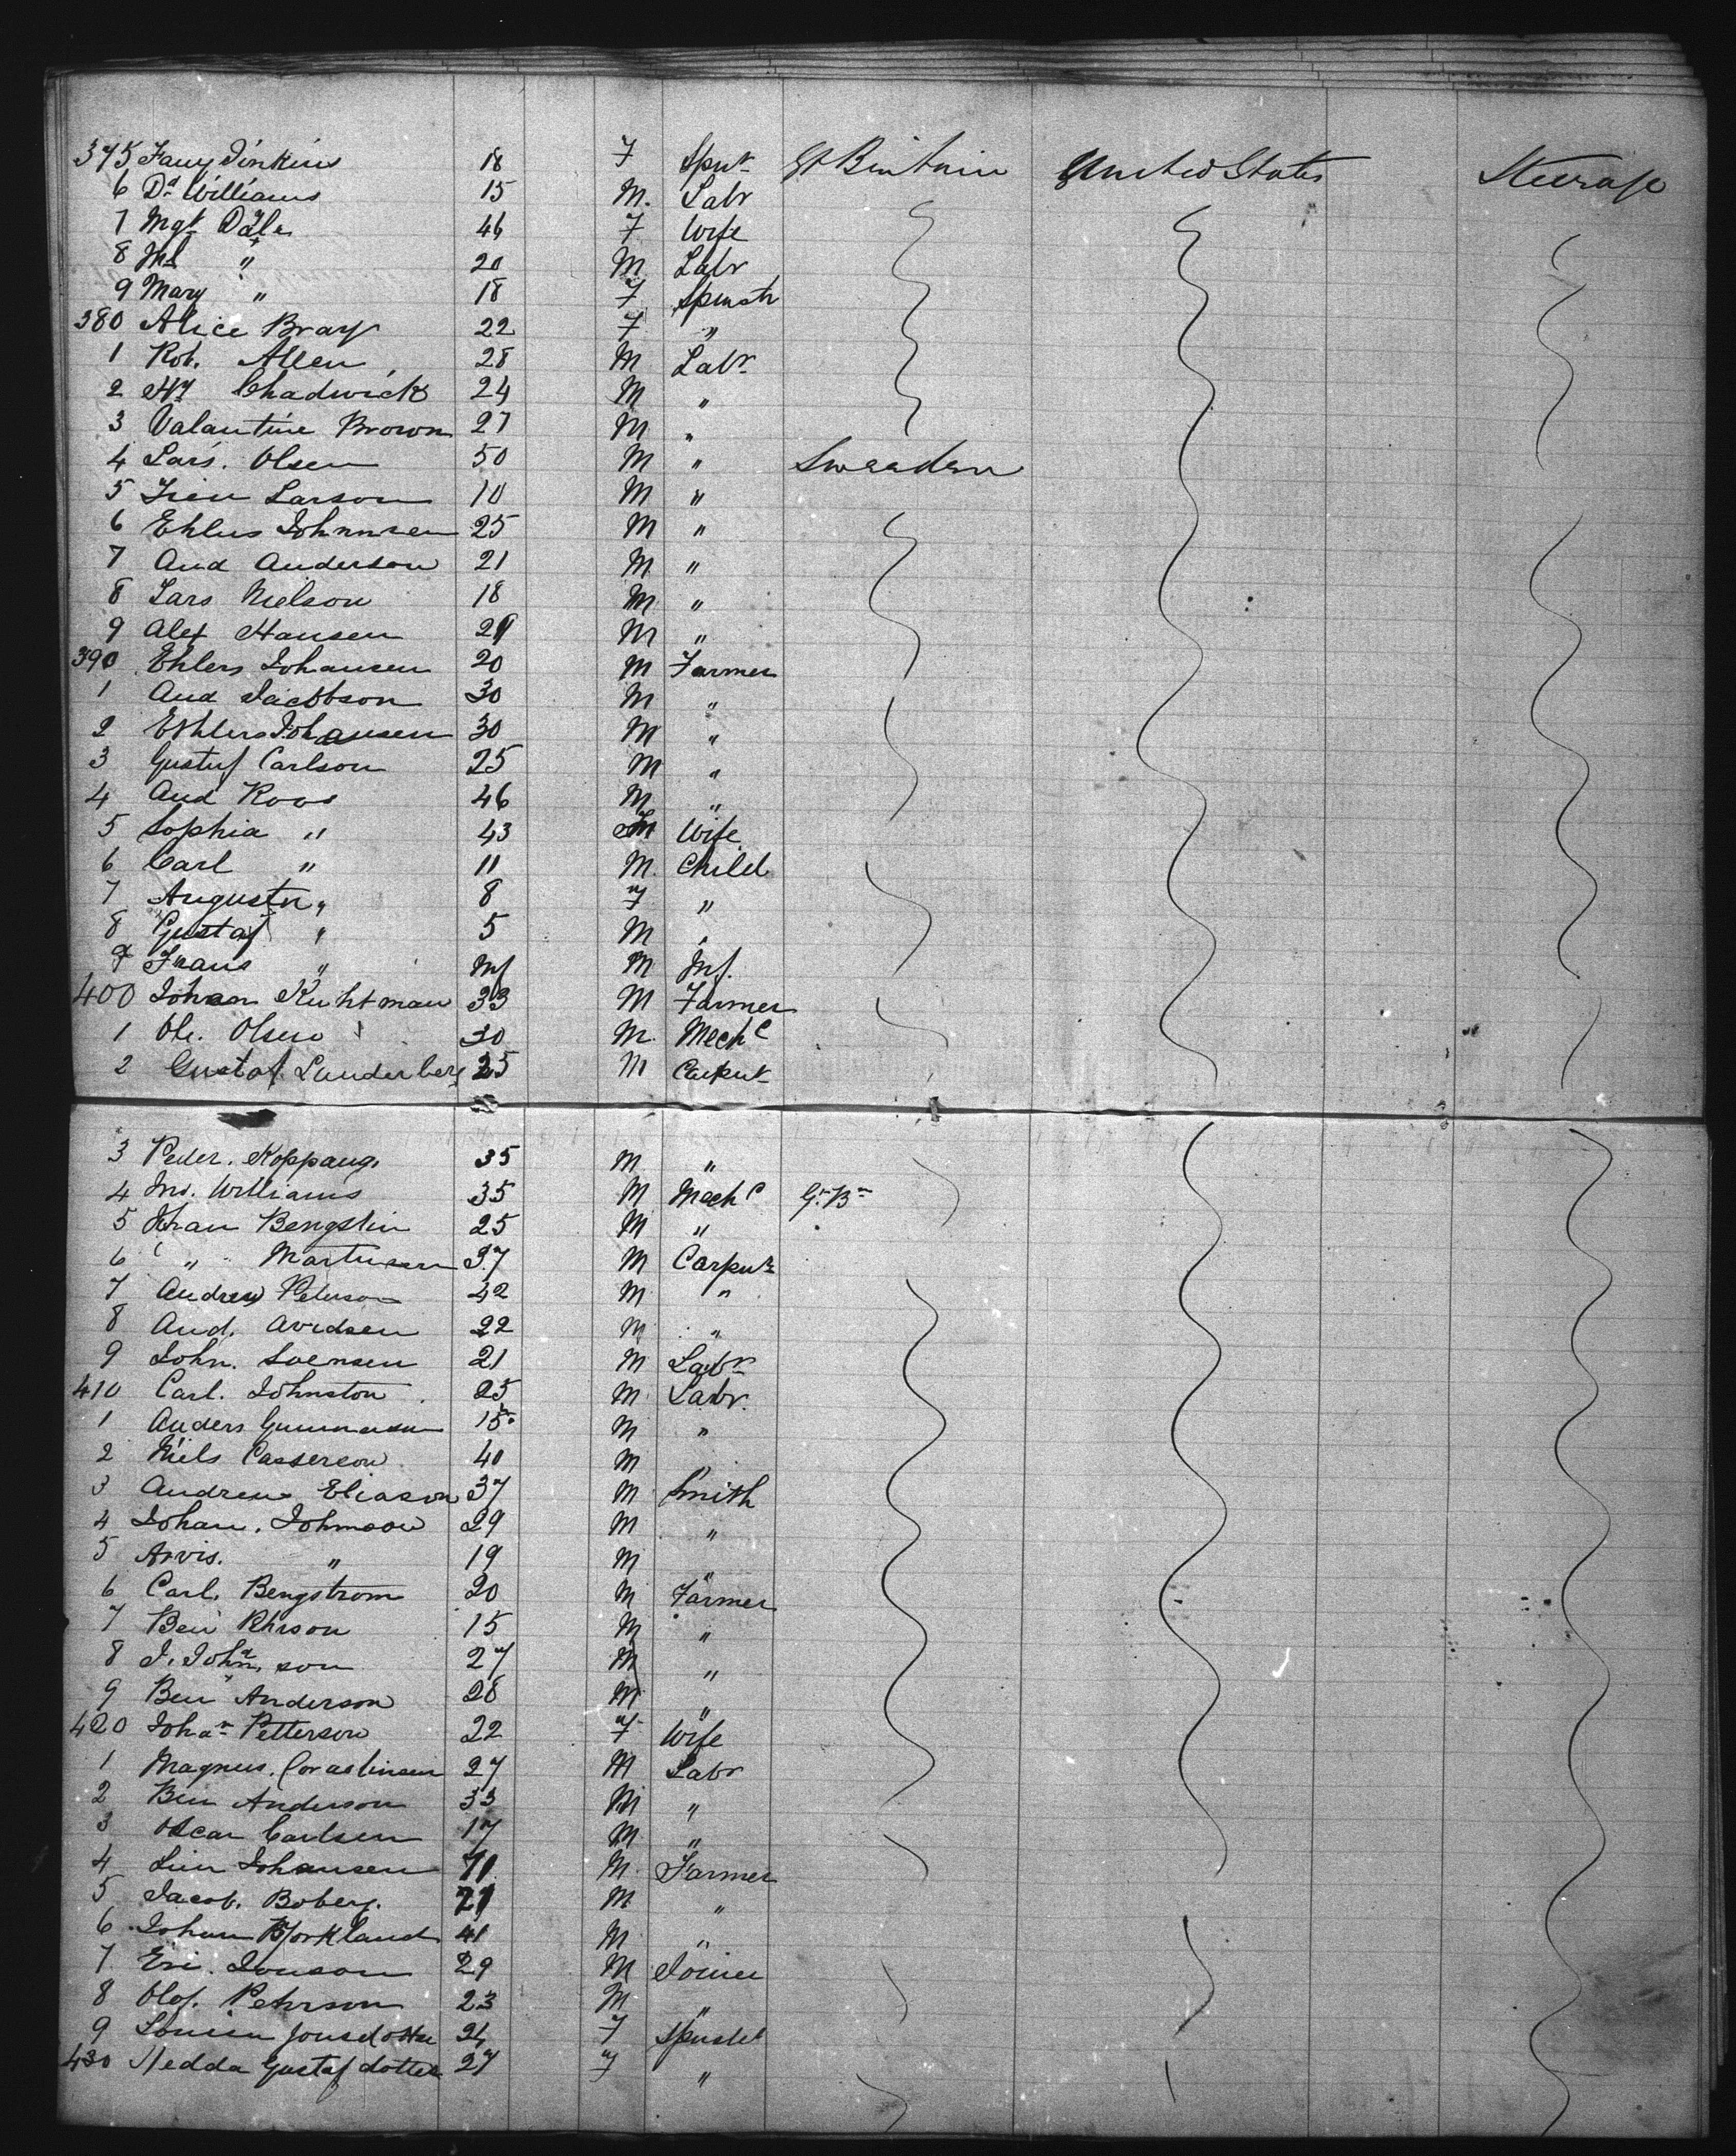 375 Fany Jinkins 18 F Spnr Gt Brintain United States Steerage
6 Dd Williams 15 M. Labr
7 Mgt Dale 46 F Wife
8 " 20 M Labr
9 Mary " 18 F Spinstr
380 Alice Bray 22 F "
1 Rob. Allen 28 M Labr
2 Hy Chadwick 24 M "
3 Valantine Brown 27 M "
4 Lars. Olsen 50 M " Sweeden
5 Larson 10 M "
6 Ehlus Johnnsen 25 M "
7 And Anderson 21 M "
8 Lars Nielson 18 M "
9 Alex Hansen 21 M "
390 Ehlers Johansen 20 M Farmer
1 And Jacobson 30 M "
2 Ehlers Johansen 30 M "
3 Gustuf Carlson 25 M "
4 And Roos 46 M "
5 Sophia " 43 Wife
6 Carl " 11 M. Child
7 Augusta " 8 F "
8 Gustaf " 5 M "
9 Frans " Inf M Inf.
400 Johan Kuhtman 33 M Farmer
1 Ole. Olsen 30 M. Mechc
2 Gustaf. Lunderberg 25 M Carpnr
3 Peder. Koppang. 35 M "
4 Jno. Williams 35 M Mechc Gr. Bn
5 Bengstin 25 M "
6 " Martinsen 37 M Carpnr
7 Andrew Peterson 42 M "
8 And. Avidsen 22 M "
9 John. Svensen 21 M Labr
410 Carl. Johnston 25 M Labr.
1 Anders Gunnarson 15 M "
2 Niels Casserson 40 M "
3 Andrew Eliason 37 M Smith
4 Johan. Johnson 29 M "
5 Arvis. " 19 M "
6 Carl. Bengstrom 20 M Farmer
7 Ben Pehrson 15 M "
8 J. Johnson 27 M "
9 Ben Anderson 28 M "
420 Johan Petterson 22 F Wife
1 Magnus. 27 M Labr
2 Ben Anderson 33 M "
3 Oscar Carlsen 17 M "
4 Johansen 71 M. Farmer
5 Jacob. Boberg. 21 M "
6 Johan Bjorkland 41 M "
7 Eri. Jonson 29 M Joiner
8 Olof. Pehrson 23 M "
9 Louisa Jonsdotter 24 F Spinstr
430 Hedda Gustafdotter 27 F "